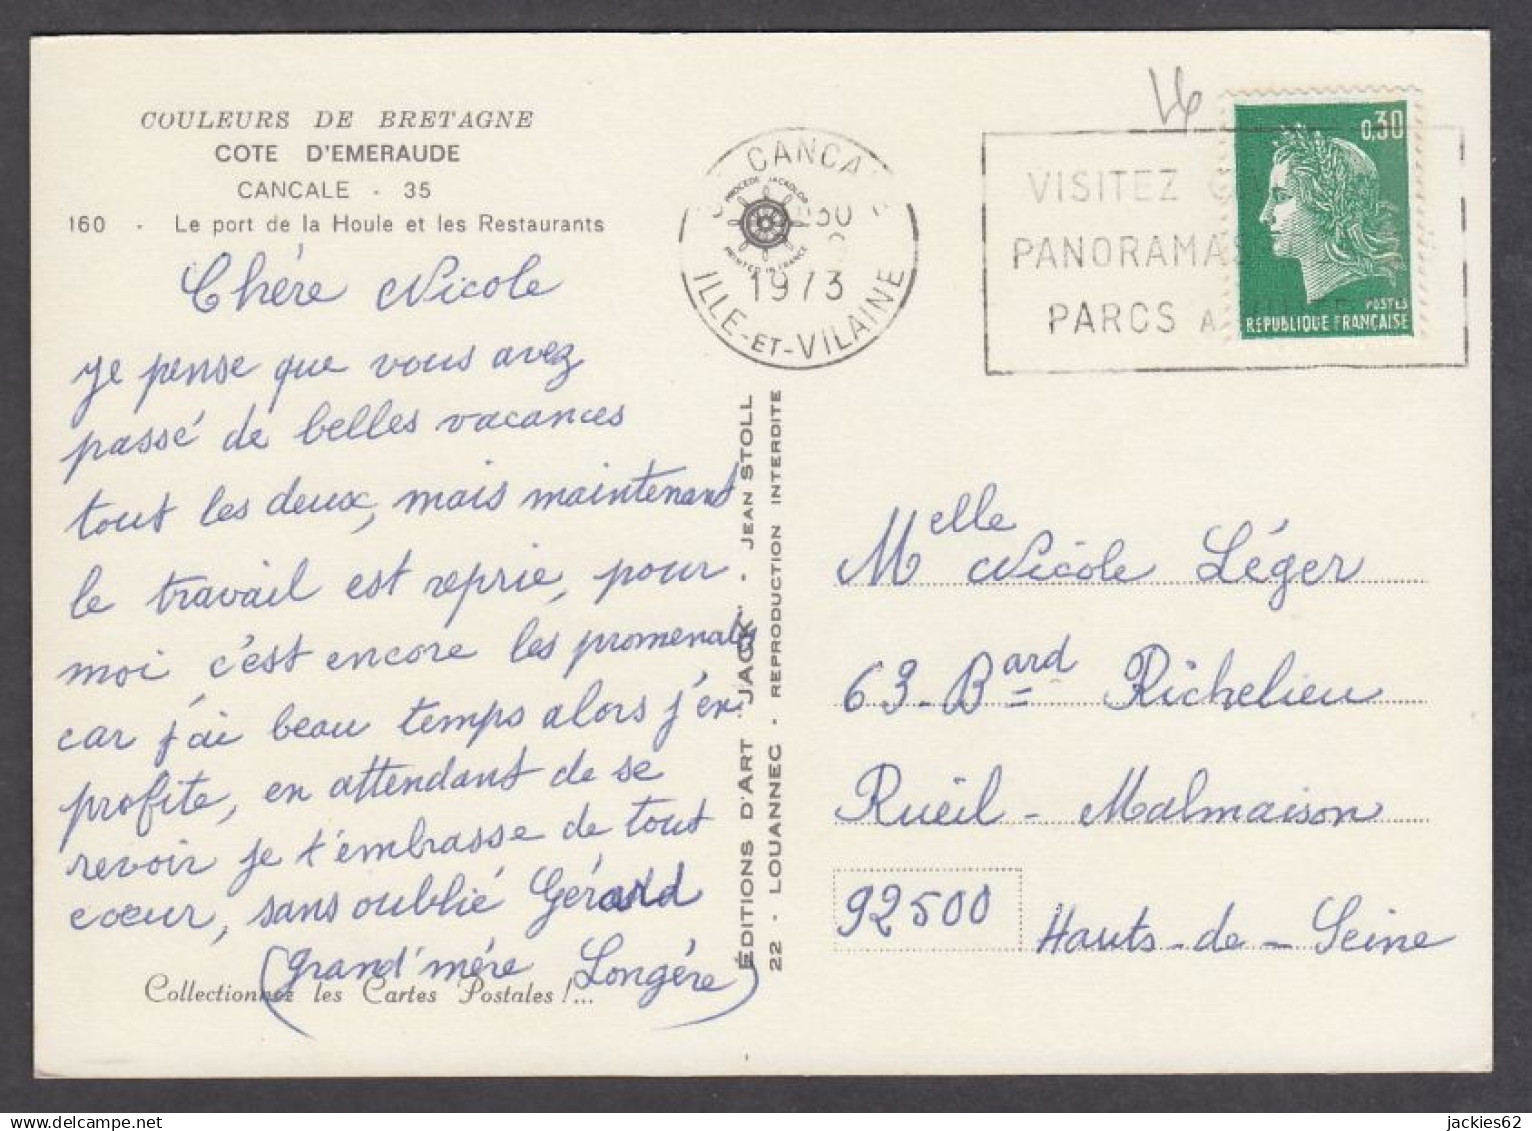 COULEURS DE BRETAGNE
COTE D'EMERAUDE
CANCALE - 35
160 - Le port de la Houle et les Restaurants
Chère Nicole
Je pense que vous avez
passé de belles vacances
tout les deux, mais maintenant
le travail est reprie, pour
moi c'est encore les promenades
car j'ai beau temps alors j'en
profite, en attendant de se
revoir je t'embrasse de tout
cœur, sans oublié Gérard
(grand'mère Longère)
Collectionnez les Cartes Postales !...
ÉDITIONS D'ART JACK - JEAN STOLL
22 - LOUANNEC - REPRODUCTION INTERDITE
PROCÉDÉ JACKOLOR
PRINTED IN FRANCE
1973
ILLE-ET-VILAINE
VISITEZ
PANORAMAS
PARCS A
0,30
POSTES
REPUBLIQUE FRANÇAISE
Melle Nicole Léger
63-Bard Richelieu
Rueil-Malmaison
92500 Hauts-de-Seine
jackies62